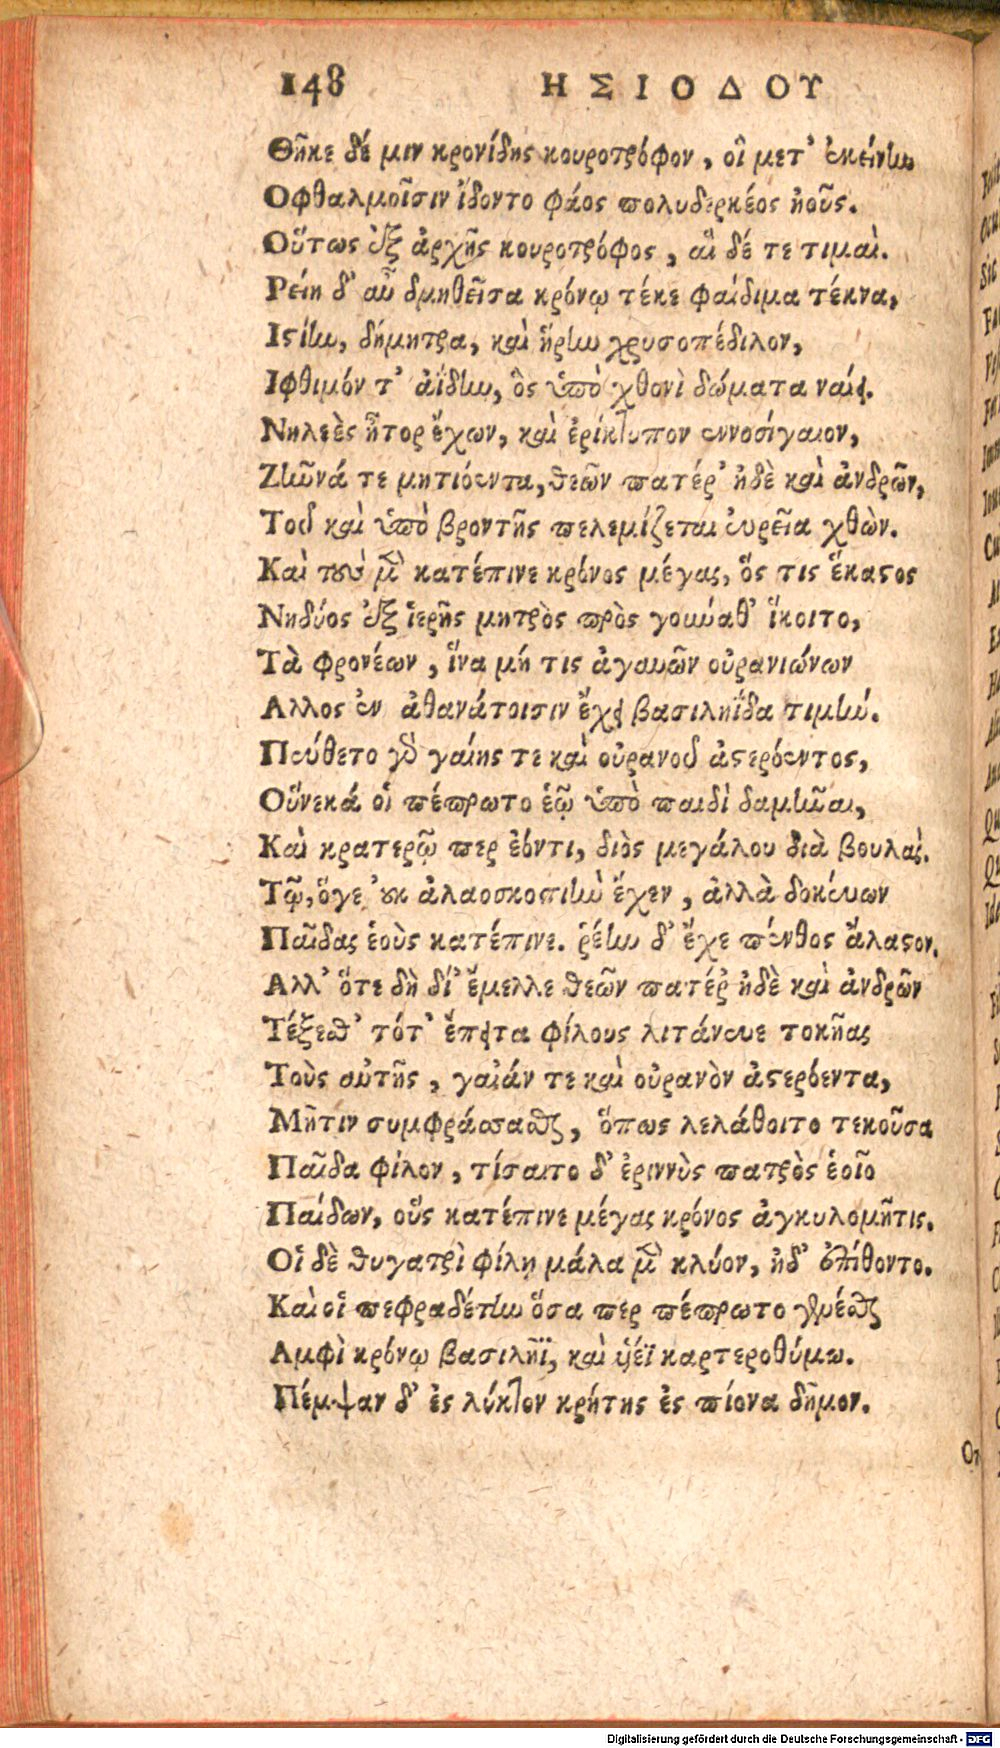 148 ΗΣΙΟΔΟΥ
Θῆκε δέ μιν κρονίδης κουροτρόφον, οἳ μετ' ἐκείνην
Οφθαλμοῖσιν ἴδοντο φάος πολυδερκέος ἠοῦς.
Οὕτως ἐξ ἀρχῆς κουροτρόφος, αἳ δέ τε τιμαὶ.
Ρείη δ' αὖ δμηθεῖσα κρόνῳ τέκε φαίδιμα τέκνα,
Ιστίην, δήμητρα, καὶ ἥρην χρυσοπέδιλον,
Ιφθιμόν τ' ἀΐδην, ὃς ὑπὸ χθονὶ δώματα ναίει.
Νηλεὲς ἦτορ ἔχων, καὶ ἐρίκτυπον ἐννοσίγαιον,
Ζῆνά τε μητιόεντα, θεῶν πατέρ' ἠδὲ καὶ ἀνδρῶν,
Τοῦ καὶ ὑπὸ βροντῆς πελεμίζεται εὐρεῖα χθὼν.
Καὶ τοὺς μὲν κατέπινε κρόνος μέγας, ὅς τις ἕκαστος
Νηδύος ἐξ ἱερῆς μητρὸς πρὸς γούναθ' ἵκοιτο,
Τὰ φρονέων, ἵνα μή τις ἀγαυῶν οὐρανιώνων
Αλλος ἐν ἀθανάτοισιν ἔχει βασιληΐδα τιμήν.
Πεύθετο γὰρ γαίης τε καὶ οὐρανοῦ ἀστερόεντος,
Οὕνεκά οἱ πέπρωτο ἑῷ ὑπὸ παιδὶ δαμῆναι,
Καὶ κρατερῷ περ ἐόντι, διὸς μεγάλου διὰ βουλάς.
Τῷ, ὅγε οὐκ ἀλαοσκοπιὴν ἔχεν, ἀλλὰ δοκεύων
Παῖδας ἑοὺς κατέπινε. ῥέην δ' ἔχε πένθος ἄλαστον.
Αλλ' ὅτε δὴ δί' ἔμελλε θεῶν πατέρ' ἠδὲ καὶ ἀνδρῶν
Τέξεσθ' τότ' ἔπειτα φίλους λιτάνευε τοκῆας
Τοὺς αὐτῆς, γαῖάν τε καὶ οὐρανὸν ἀστερόεντα,
Μῆτιν συμφράσσασθαι, ὅπως λελάθοιτο τεκοῦσα
Παῖδα φίλον, τίσαιτο δ' ἐριννὺς πατρὸς ἑοῖο
Παίδων, οὓς κατέπινε μέγας κρόνος ἀγκυλομῆτις.
Οἳ δὲ θυγατρὶ φίλῃ μάλα μὲν κλύον, ἠδ' ἐπίθοντο.
Καὶ οἳ πεφραδέτην ὅσα περ πέπρωτο γενέσθαι
Αμφὶ κρόνῳ βασιλῆϊ, καὶ υἱέϊ καρτεροθύμω.
Πέμψαν δ' ἐς λύκτον κρήτης ἐς πίονα δῆμον.
Digitalisierung gefördert durch die Deutsche Forschungsgemeinschaft - DFG